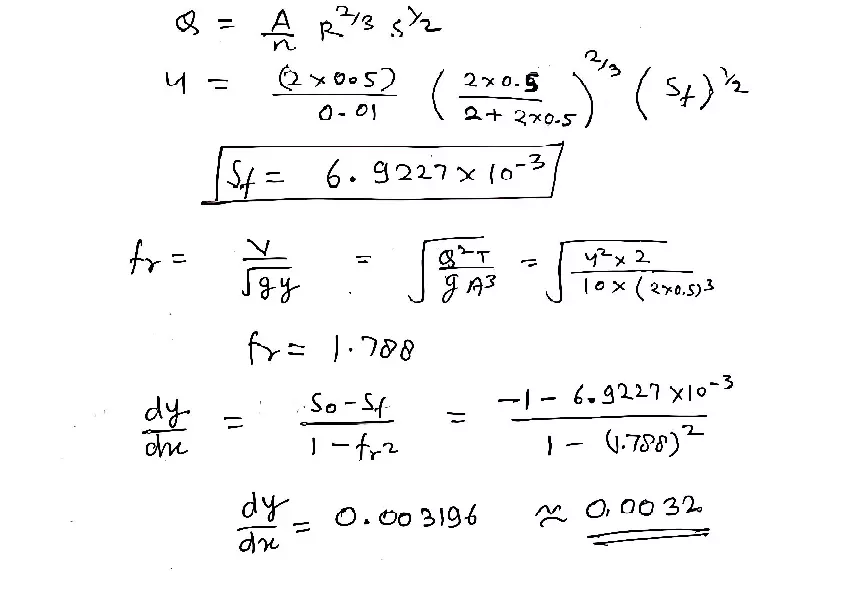 Q = A/n R^2/3 S^1/2
4 = (2×0.5)/0.01 (2×0.5/2+2×0.5)^2/3 (Sf)^1/2
Sf = 6.9227×10^-3
fr = V/√gy = √Q²T/gA³ = √4²×2/10×(2×0.5)³
fr = 1.788
dy/dx = So-Sf/1-fr2 = -1-6.9227×10^-3/1-(1.788)²
dy/dx = 0.003196 ≈ 0.0032